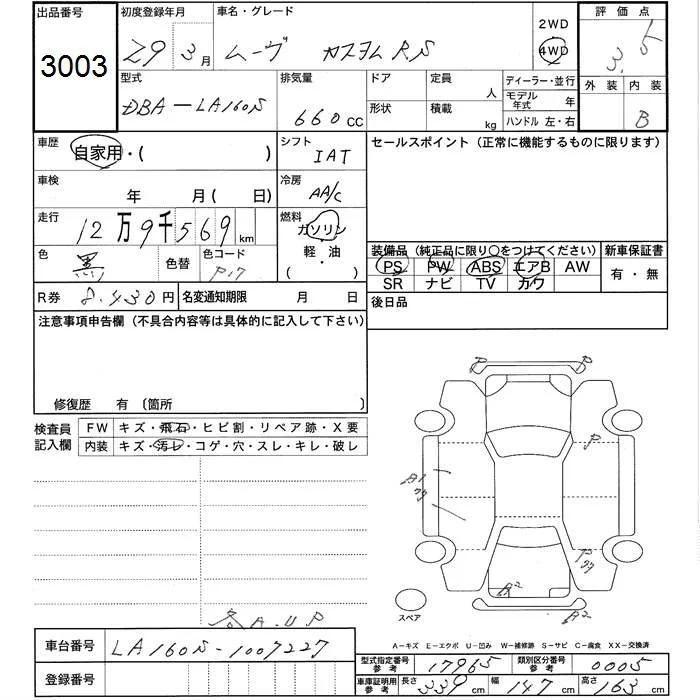 出品番号 初度登録年月 車名・グレード 評価点
3003 29年3月 ムーヴ カスタム RS 2WD 4WD 3.5
型式 排気量 ドア 定員 人 ディーラー・並行 外装 内装
DBA-LA160S 660cc 形状 積載 kg モデル年式 年 B
ハンドル 左・右
車歴 自家用・( ) シフト IAT セールスポイント（正常に機能するものに限ります）
車検 年 月(日) 冷房 AA/C
走行 12万9千569km 燃料 ガソリン 軽・油 ( )
色 黒 色替 色コード P17 装備品（純正品に限り○をつけてください） 新車保証書
PS PW ABS エアB AW 有・無
SR ナビ TV カワ
R券 8,430円 名変通知期限 月 日 後日品
注意事項申告欄（不具合内容等は具体的に記入して下さい）
修復歴 有 〔箇所 〕
検査員記入欄 FW キズ・飛石・ヒビ割・リペア跡・X要
内装 キズ・汚レ・コゲ・穴・スレ・キレ・破レ
P P
P
A1
P
A2
A2
スペア
各A.UP
A－キズ E－エクボ U－凹み W－補修跡 S－サビ C－腐食 XX－交換済
車台番号 LA160S-1007227
型式指定番号 参考 17965 類別区分番号 参考 0005
登録番号 車庫証明用 参考 長さ 339cm 幅 147cm 高さ 163cm